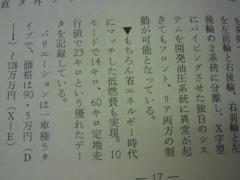 を左前輪と右後輪、右前輪と左
後輪の2系統に分離し、X字型
にパイピングさせた独自のシス
テムを開発油圧系統に異常が起
きてもフロント、リア両方の制
動が可能となっている。
▼もちろん省エネルギー時代
にマッチした低燃費も実現。10
モードで14キロ、60キロ定地走
行値で23キロという優れたデー
タを記録している。
バリエーションは一車種5タ
イプで、価格は90・5万円（D
―17―